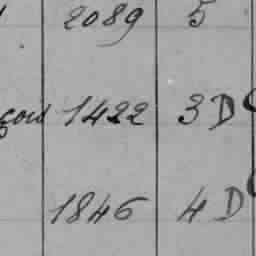 2089 5
çois 1422 3D
1846 4D